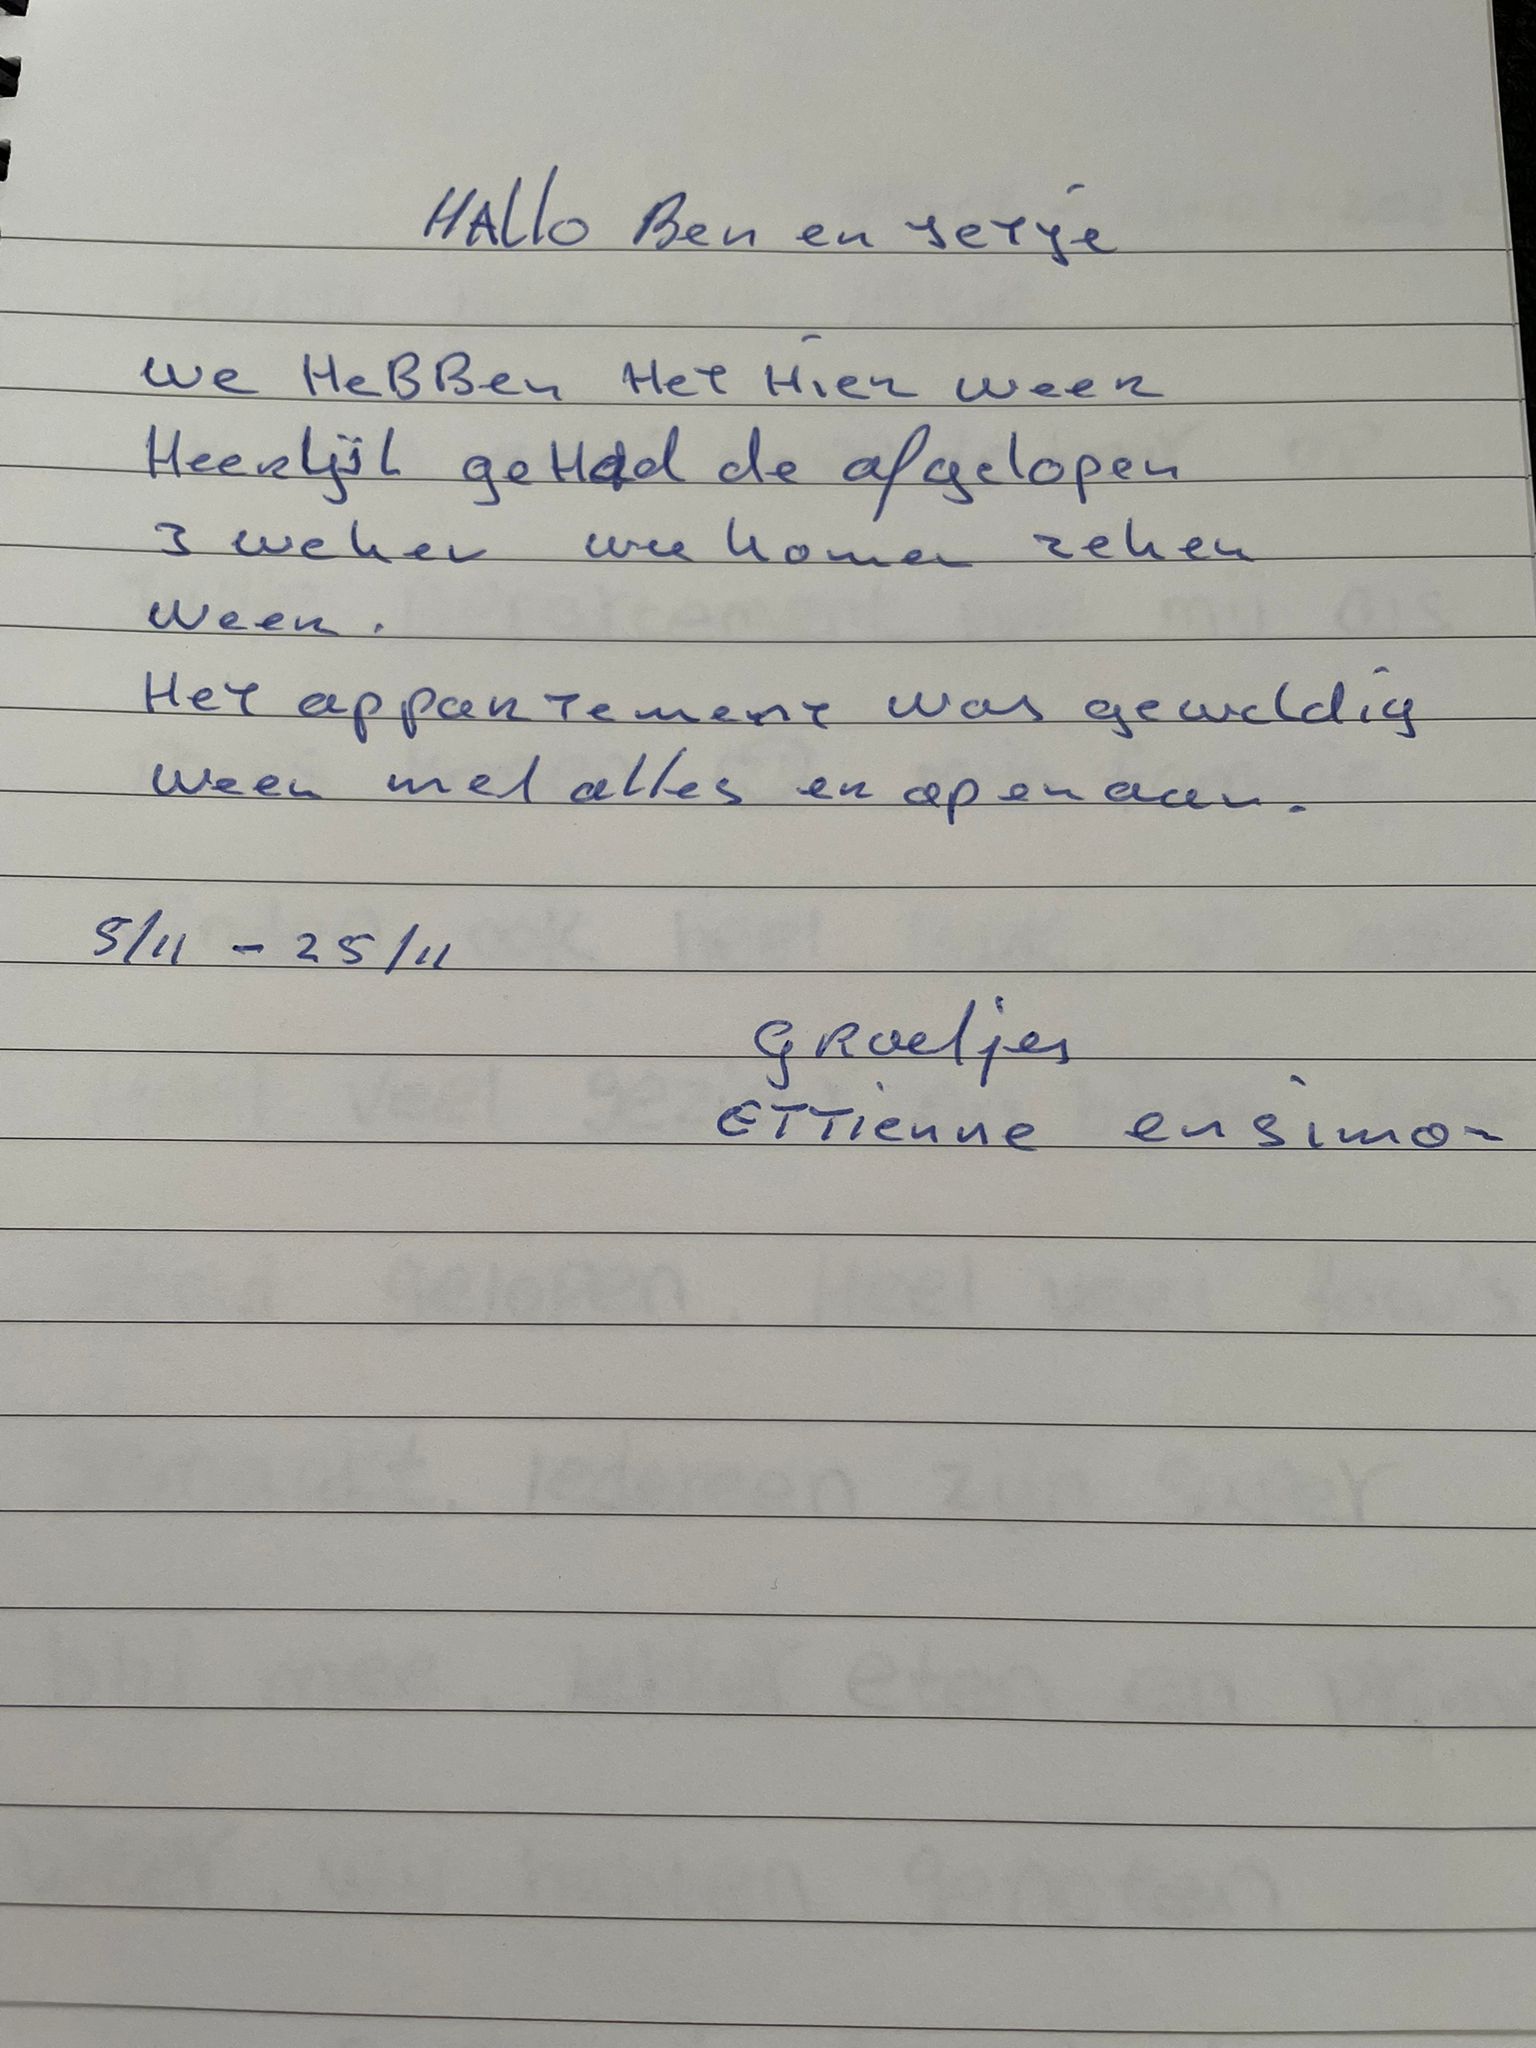 Hallo Ben en Jetje
we HeBBen Het Hier weer
Heerlijk geHad de afgelopen
3 weken we komen zeker
weer.
Het appartement was geweldig
weer met alles er op en aan.
5/11 - 25/11
Groetjes
ETTienne en Simon